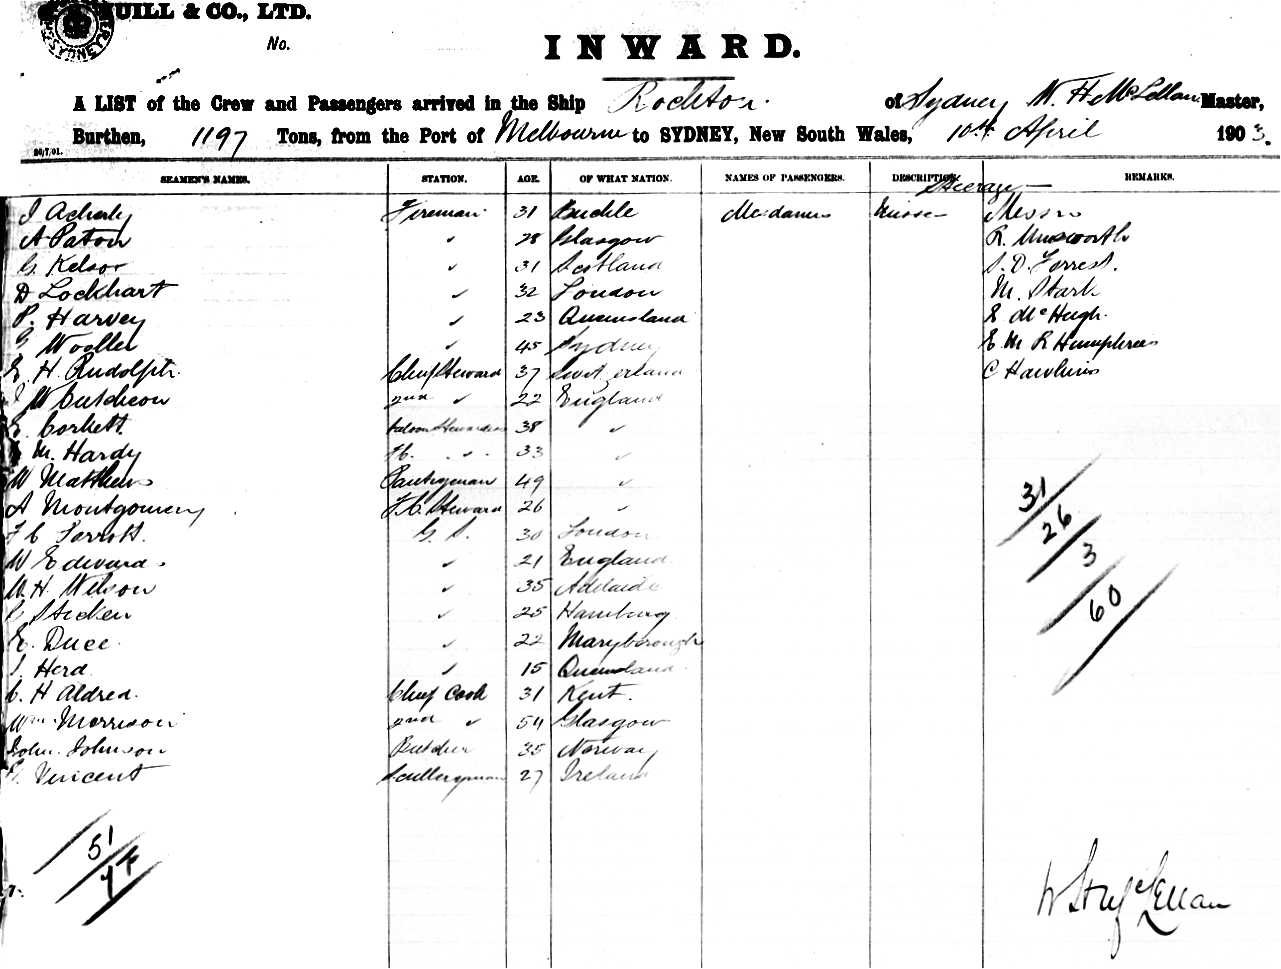 UILL & CO., LTD.
No.
INWARD.
A LIST of the Crew and Passengers arrived in the Ship Rockton. of Sydney W. H McLellan Master,
Burthen, 1197 Tons, from the Port of Melbourne to SYDNEY, New South Wales, 10th April 1903.
20/7/01.
SEAMEN'S NAMES. STATION. AGE. OF WHAT NATION. NAMES OF PASSENGERS. DESCRIPTION. REMARKS.
Steerage
J Acherly Fireman 31 Mesdames Misses Messrs
A Paton " 28 Glasgow R. Unsworth
G Kelsor " 31 Scotland S. D. Forrest.
D Lockhart " 32 London M. Stark
P. Harvey " 23 Queensland E McHugh.
G Wooller " 45 Sydney E. M R Humphries
E. H. Rudolph Chief Steward 37 Switzerland C Hawkins
J W Cutcheon 2nd " 22 England
E. Corkett Saloon Stewardess 38 "
E M. Hardy 33 "
W Matthews Pantryman 49 "
A Montgomery F.C. Steward 26 "
F C G. S. 30 London
W Edwards " 21 England
W. H. Wilson " 35 Adelaide
" 25 Hamburg
E. Duce " 22 Maryborough
J. Herd " 15 Queensland
C. H Aldred. Chief Cook 31 Kent.
Wm Morrison 2nd " 54 Glasgow
John Johnson Butcher 35 Norway
Vincent Sculleryman 27 Ireland
31
26
3
60
51
W H McLellan